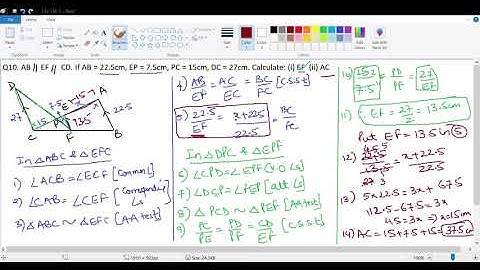 Q10. AB // EF // CD. If AB = 22.5cm, EP = 7.5cm, PC = 15cm, DC = 27cm. Calculate: (i) EF (ii) AC
D
27
C
15
P
7.5
E
15
A
22.5
B
F
13.5
In △ABC & △EFC
1) ∠ACB = ∠ECF [Common]
2) ∠CAB = ∠CEF [Corresponding ∠s]
3) △ABC ~ △EFC [AA test]
4) AB/EF = AC/EC = BC/FC [c.s.s.t]
5) 22.5/EF = x+22.5/22.5 = BC/FC
In △DPC & △EPF
6) ∠CPD = ∠EPF (v.o ∠s)
7) ∠DCP = ∠FEP [alt. ∠s]
8) △PCD ~ △PEF [AA test]
9) PC/PE = PD/PF = CD/EF [c.s.s.t]
10) 15 2/7.5 = PD/PF = 27/EF
11) ∴ EF = 27/2 = 13.5cm
Put EF = 13.5 in (5)
12) 22.5/13.5 = x+22.5/22.5
27 3
13) 5×22.5 = 3x + 67.5
112.5 - 67.5 = 3x
45 = 3x ⇒ x = 15cm
14) AC = 15+7.5+15 = 37.5cm